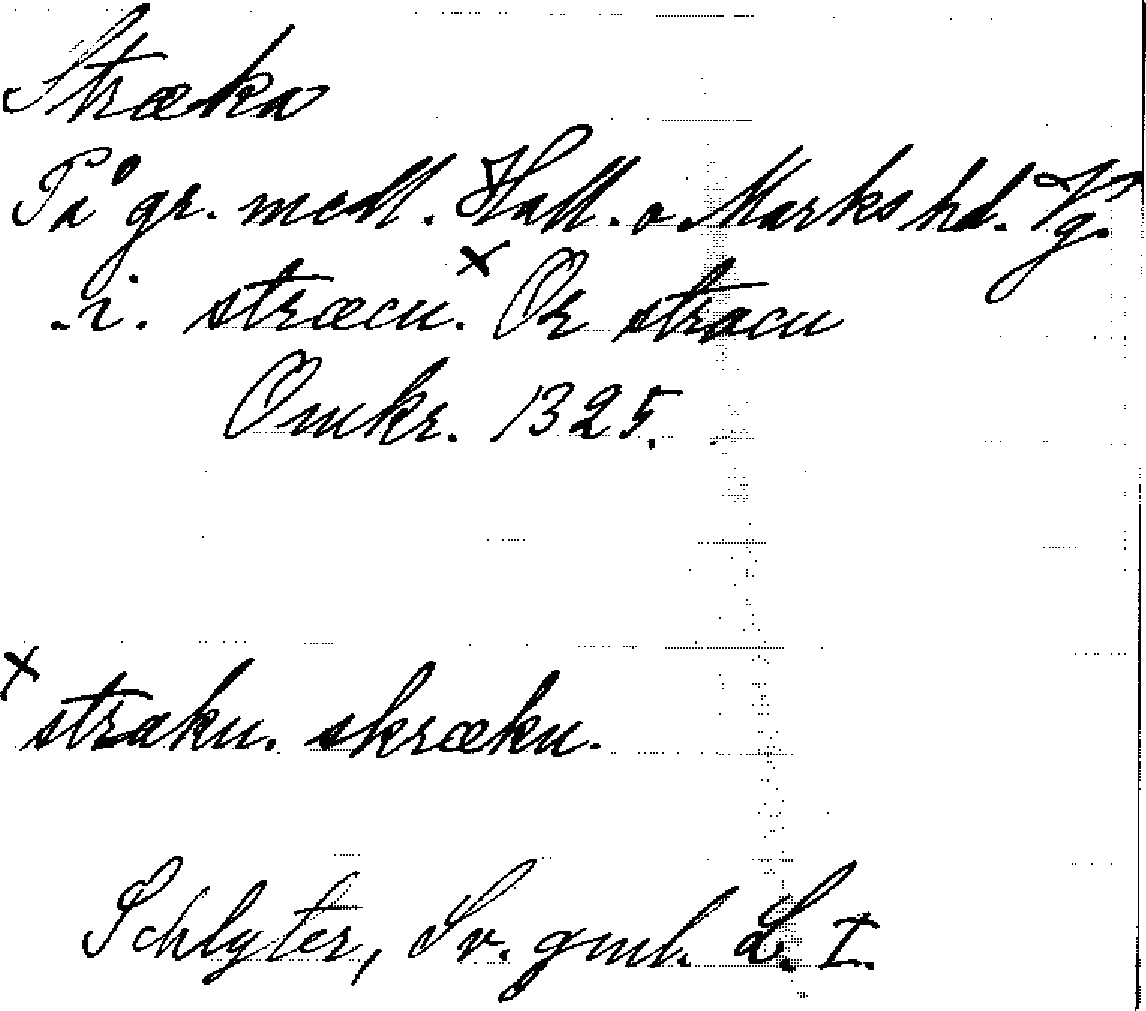 Stræka
På gr. mell. Hall. o. Marks hd. Vg.
.i. stræcu.× Or stracu
Omkr. 1325.
× straku. skræku.
Schlyter, Sv. gml. L. I.